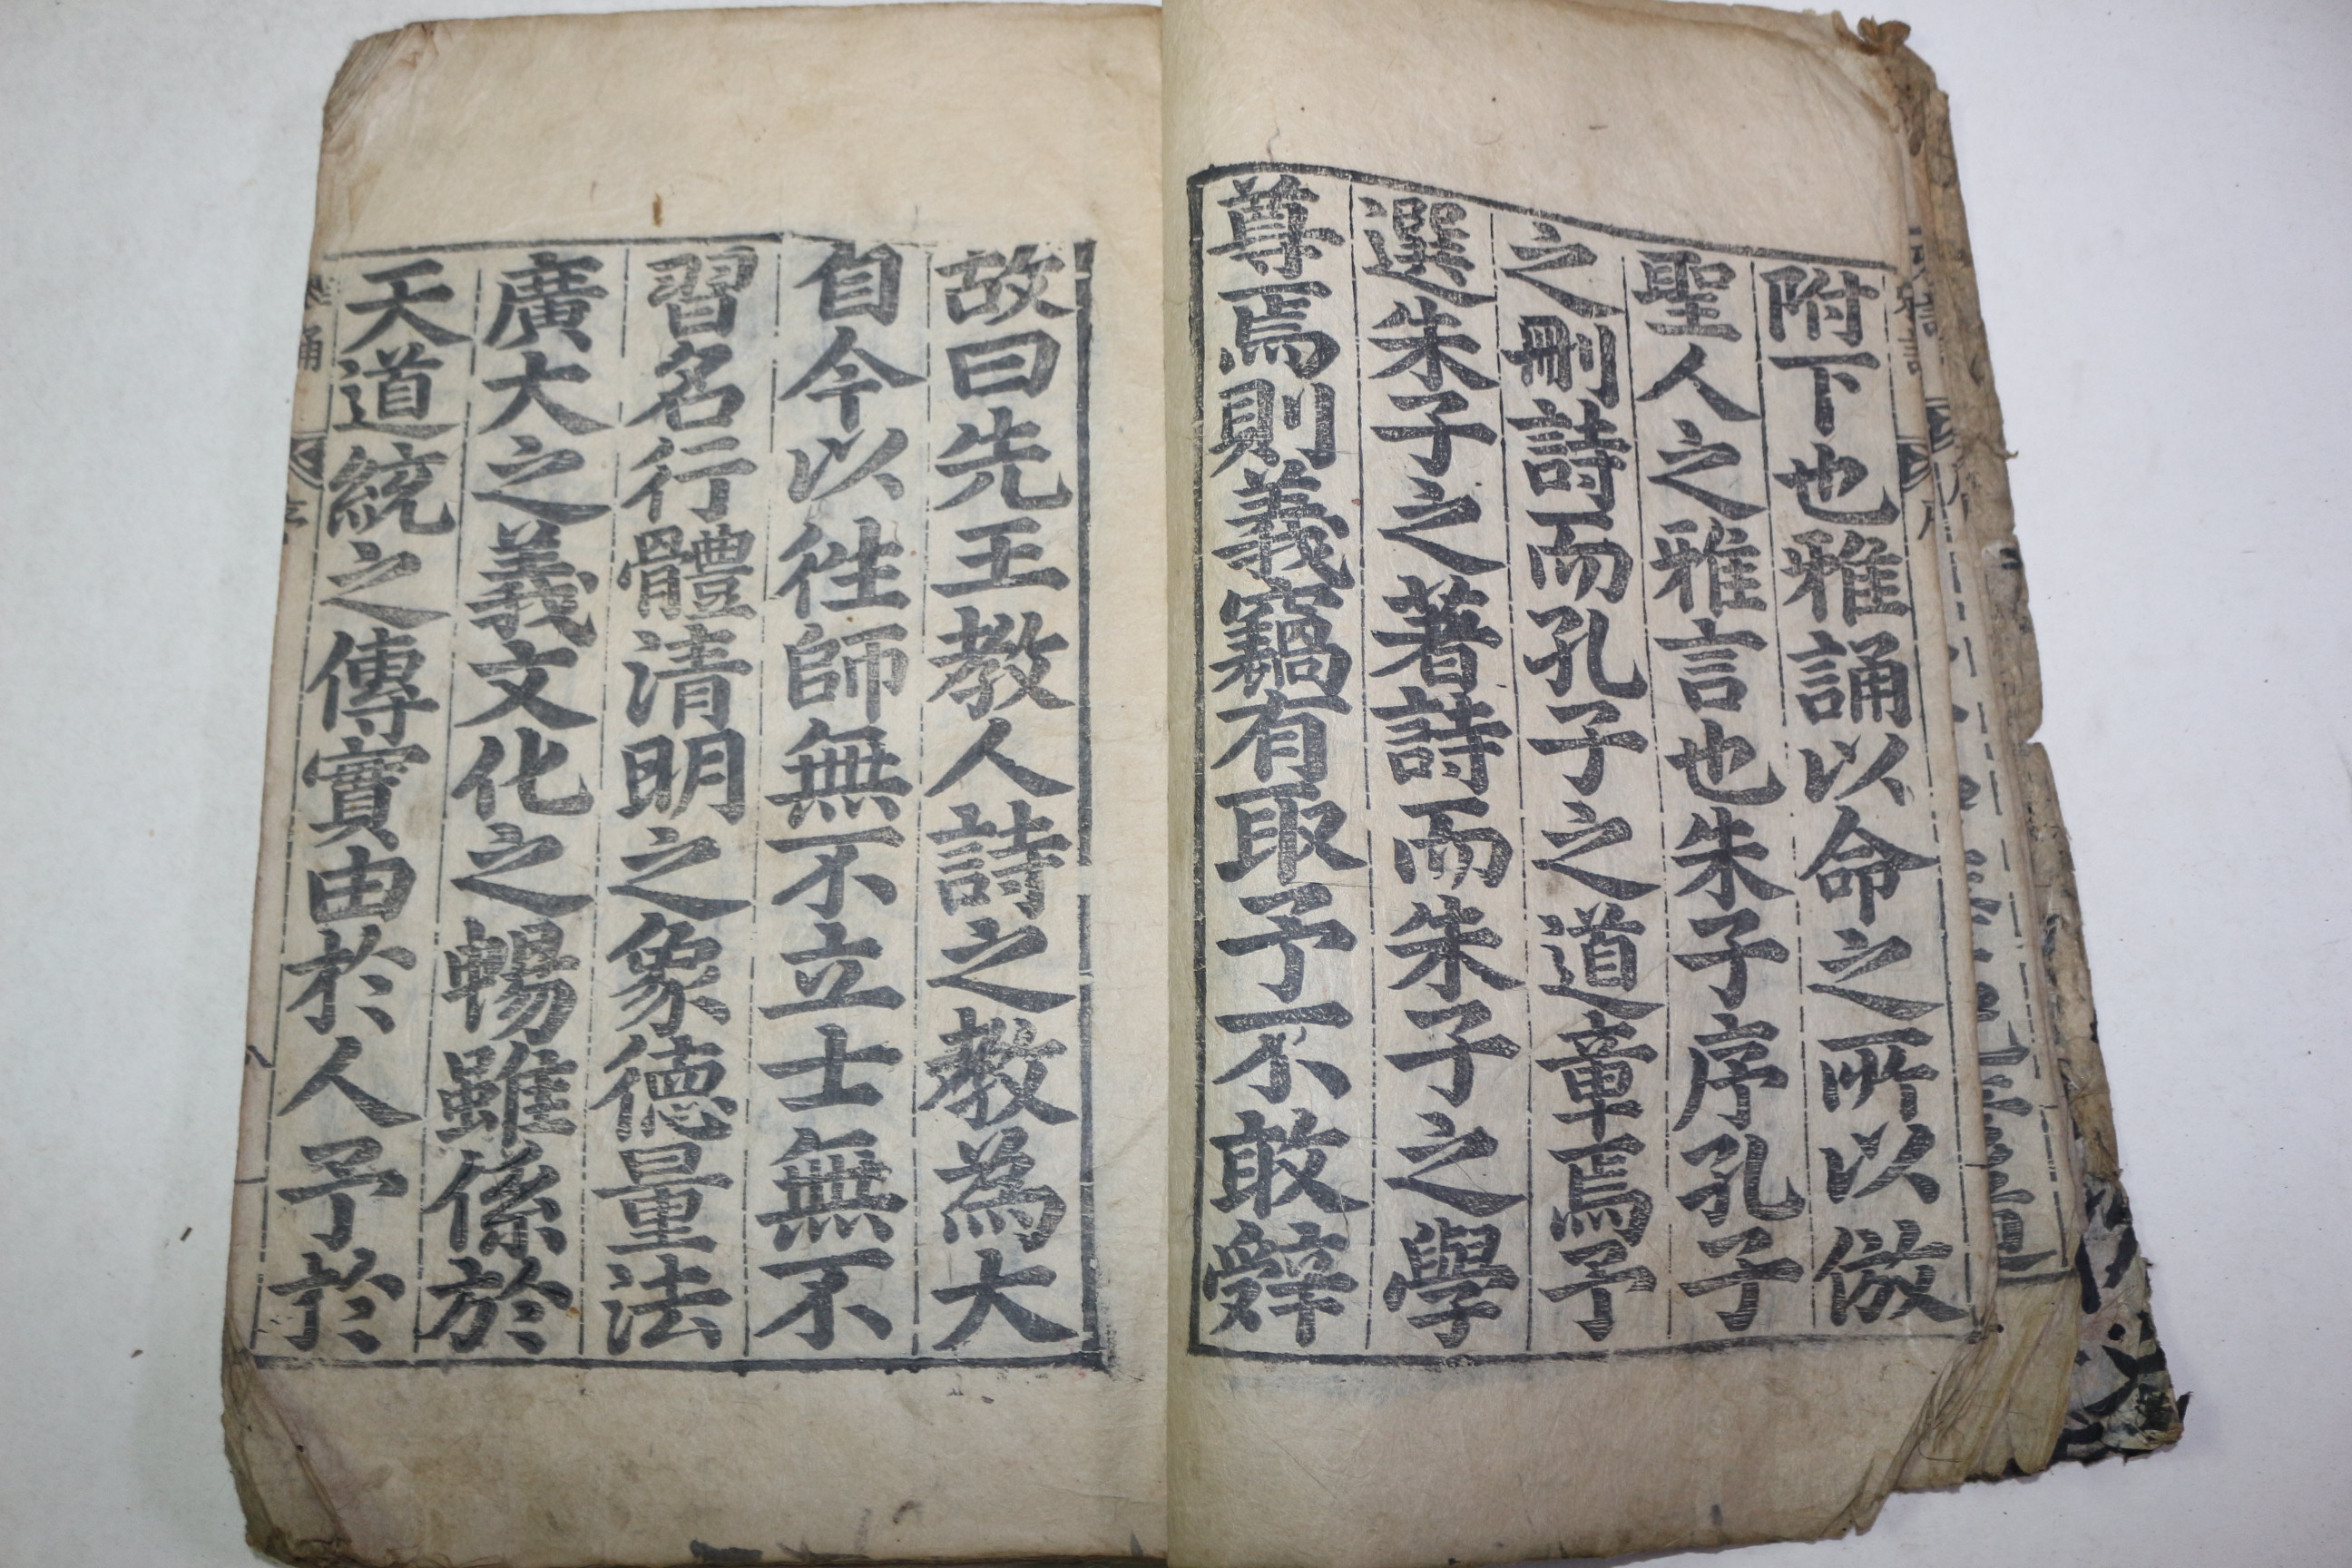 附下也雅誦以命之所以倣
聖人之雅言也朱子序孔子
之刪詩而孔子之道章焉予
選朱子之著詩而朱子之學
尊焉則義竊有取予不敢辭
故曰先王教人詩之教為大
自今以徃師無不立士無不
習名行體清明之象德量法
廣大之義文化之暢雖係於
天道統之傳實由於人予於